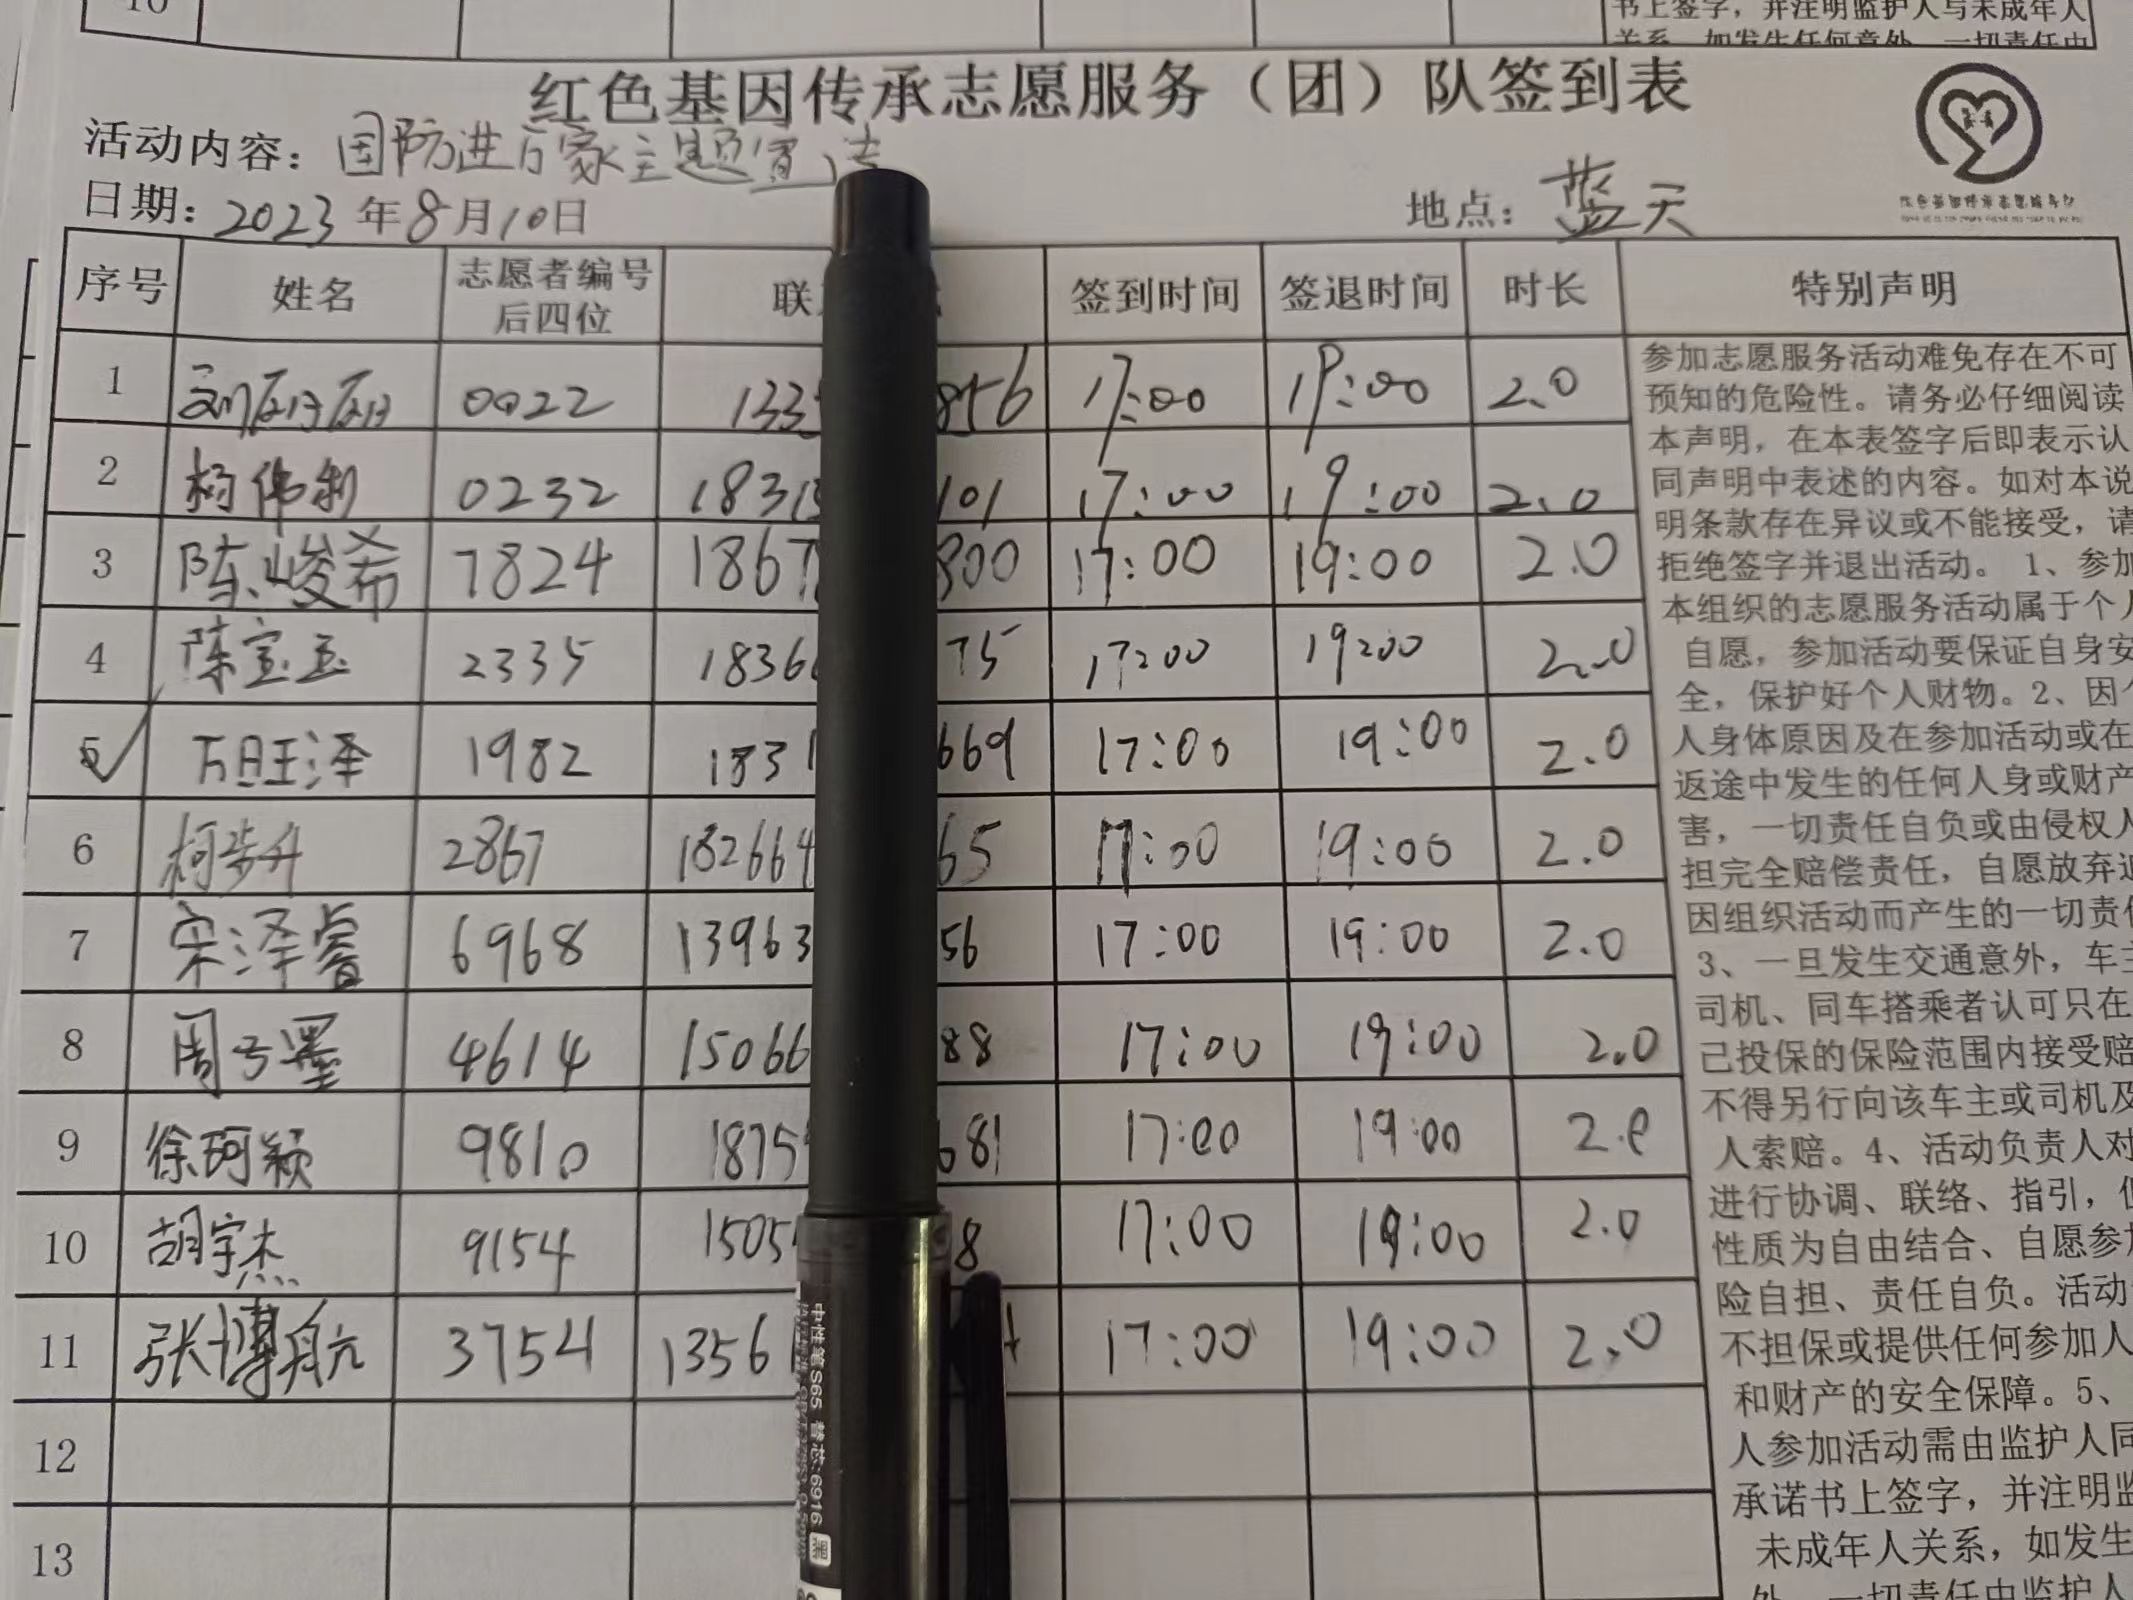 10
书上签字，并注明监护人与未成年人
关系，如发生任何意外，一切责任由
红色基因传承志愿服务（团）队签到表
活动内容：国防进万家主题宣
日期：2023年8月10日
地点：蓝天
序号 姓名 志愿者编号后四位 联 签到时间 签退时间 时长 特别声明
1 刘 0022 133 856 17:00 19:00 2.0
2 柯伟利 0232 1831 101 17:00 19:00 2.0
3 陈峻希 7824 1867 800 17:00 19:00 2.0
4 陈宝玉 2335 1836 75 17:00 19:00 2.0
5 万旺泽 1982 1831 669 17:00 19:00 2.0
6 柯步升 2867 182664 65 17:00 19:00 2.0
7 宋泽睿 6968 13963 56 17:00 19:00 2.0
8 周子墨 4614 15066 88 17:00 19:00 2.0
9 徐珂颖 9810 1875 681 17:00 19:00 2.0
10 胡宇杰 9154 1505 8 17:00 19:00 2.0
11 张博航 3754 1356 17:00 19:00 2.0
12
13
参加志愿服务活动难免存在不可
预知的危险性。请务必仔细阅读
本声明，在本表签字后即表示认
同声明中表述的内容。如对本说
明条款存在异议或不能接受，请
拒绝签字并退出活动。 1、参加
本组织的志愿服务活动属于个人
自愿，参加活动要保证自身安
全，保护好个人财物。2、因个
人身体原因及在参加活动或在
返途中发生的任何人身或财产
害，一切责任自负或由侵权人
担完全赔偿责任，自愿放弃追
因组织活动而产生的一切责任
3、一旦发生交通意外，车主
司机、同车搭乘者认可只在
己投保的保险范围内接受赔
不得另行向该车主或司机及
人索赔。4、活动负责人对
进行协调、联络、指引，但
性质为自由结合、自愿参加
险自担、责任自负。活动
不担保或提供任何参加人
和财产的安全保障。5、
人参加活动需由监护人同
承诺书上签字，并注明监
未成年人关系，如发生
外，一切责任由监护人
中性笔S65 替芯:6916